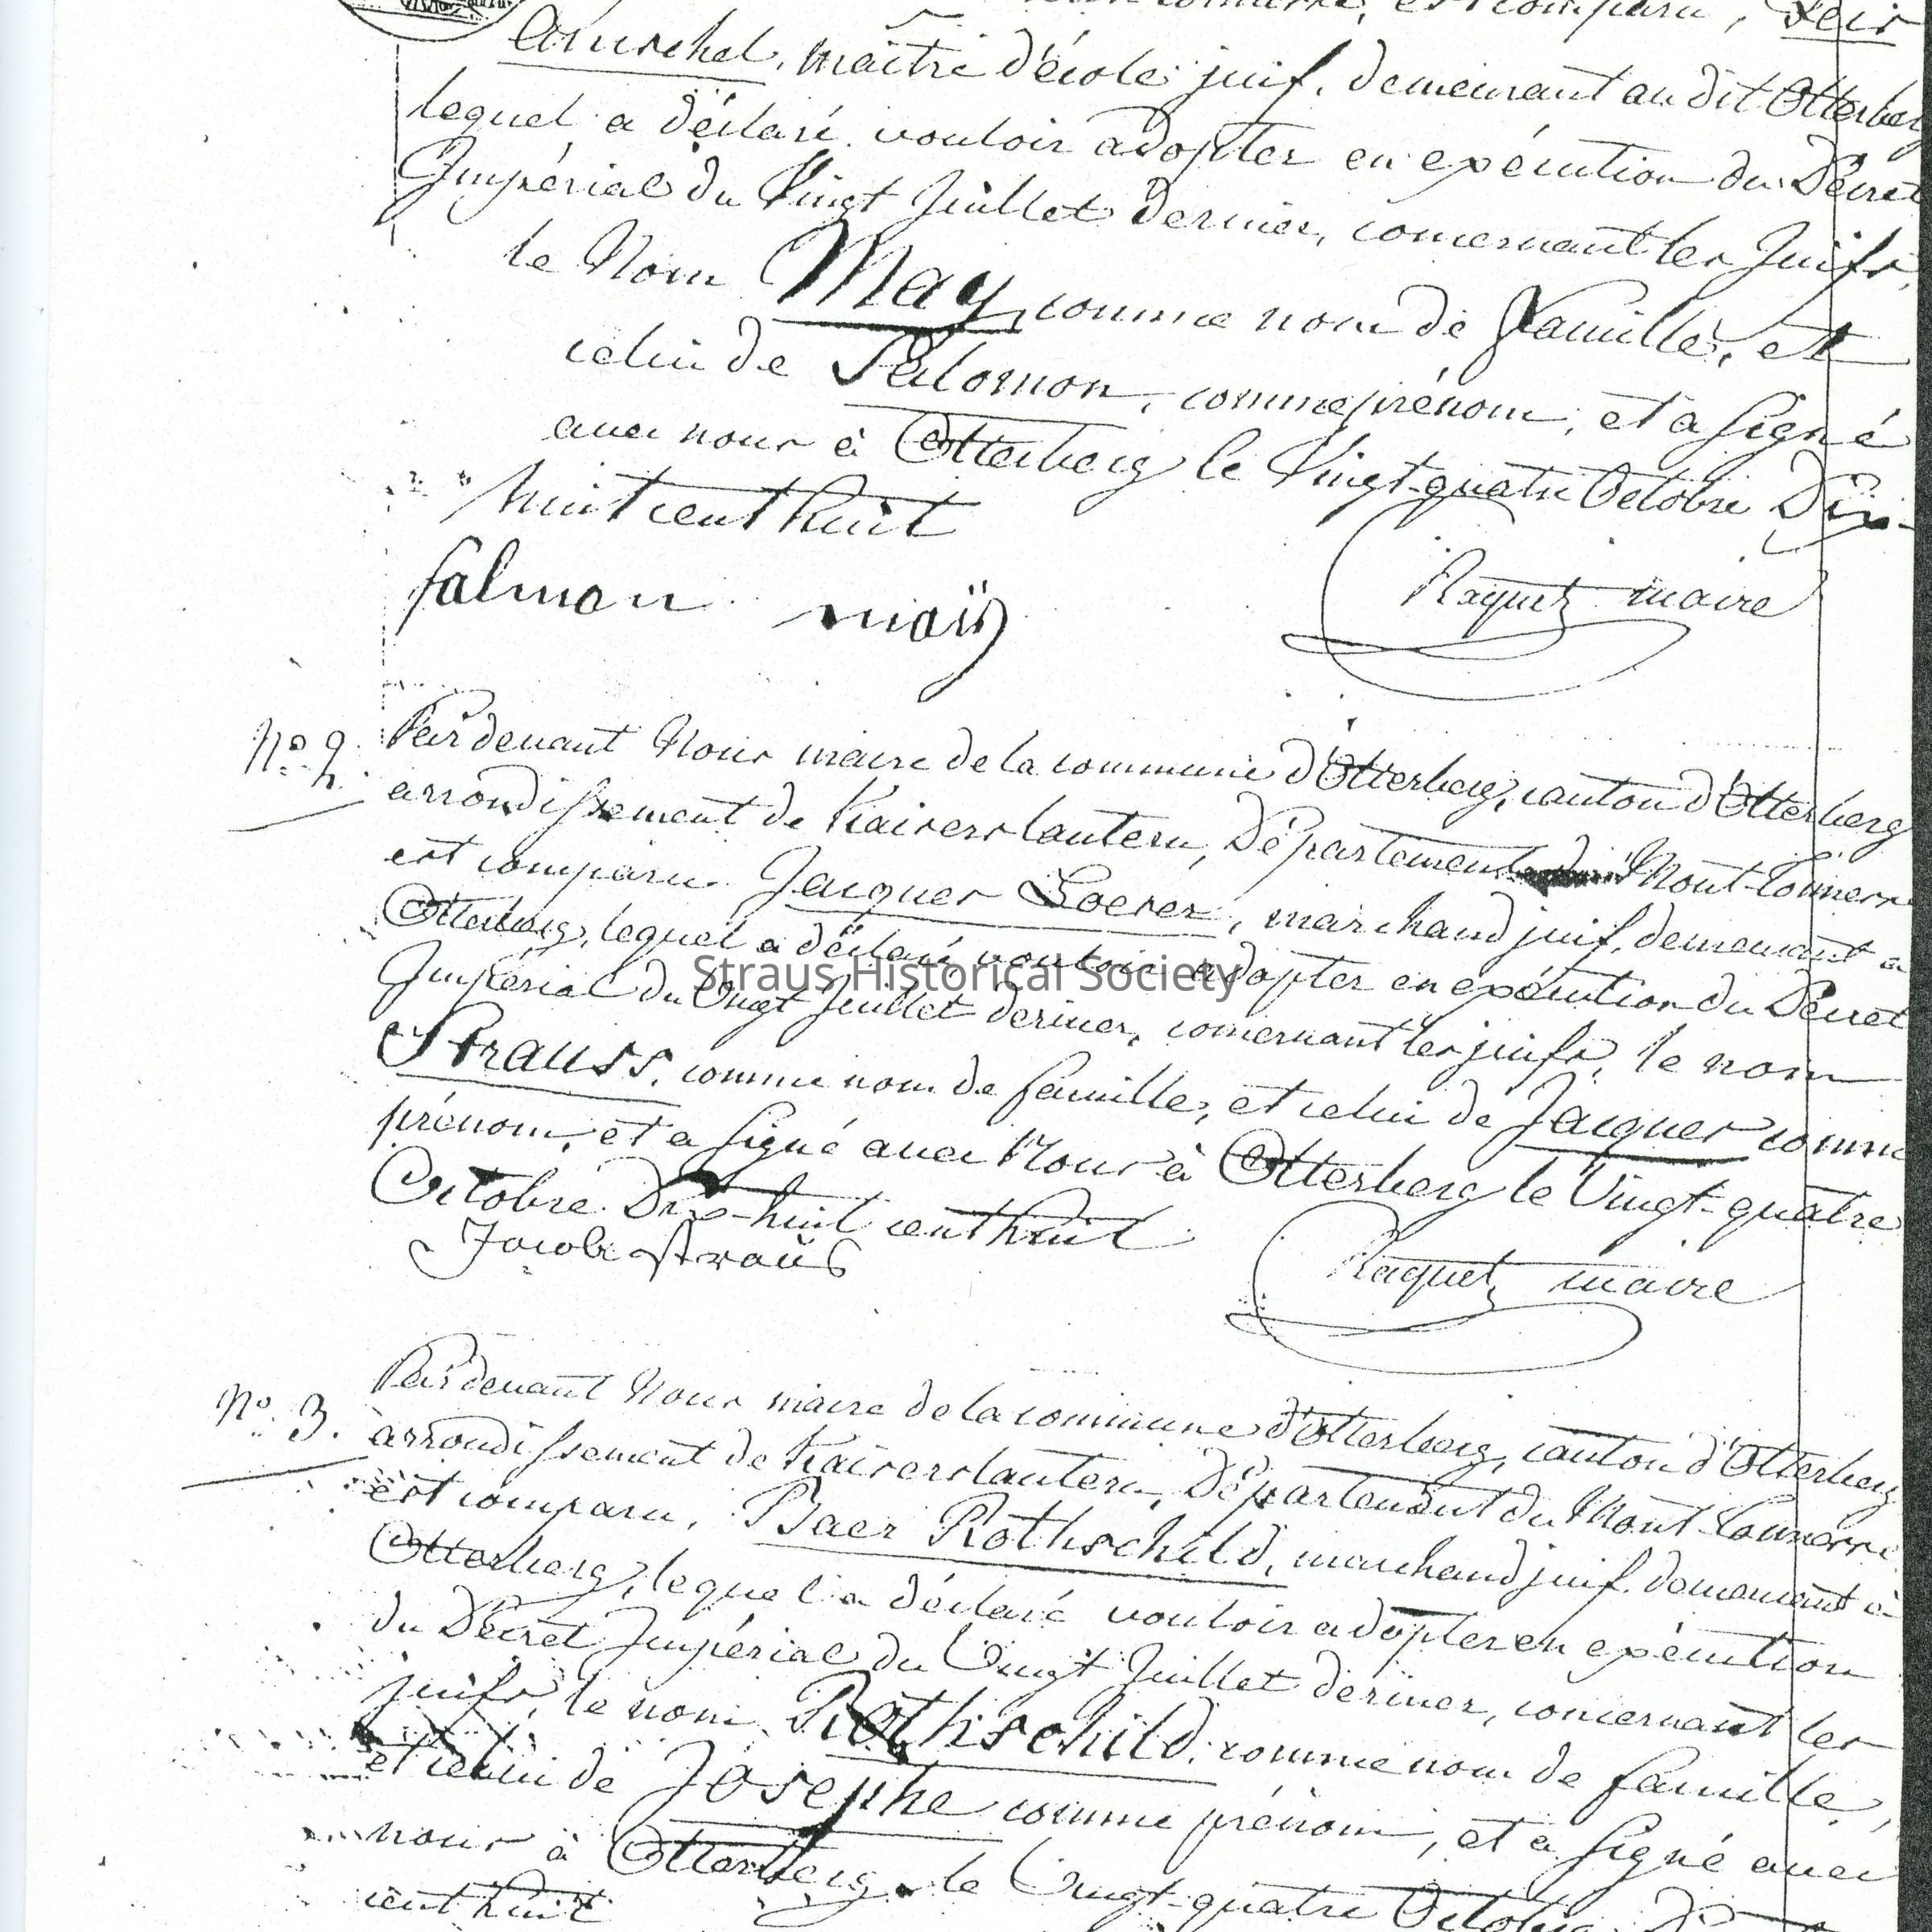 est comparu, Seir
Anschel, maître d'école juif, demeurant au dit Otterberg
lequel a déclaré vouloir adopter en exécution du Décret
Impérial du Vingt Juillet dernier, concernant les Juifs,
le Nom May, comme nom de famille, et
celui de Salomon, comme prénom, et a signé
avec nous à Otterberg le Vingt-quatre Octobre Dix-
huit cent huit
Salmon maÿ
Raquet maire
No. 2. Pardevant Nous maire de la commune d'Otterberg, canton d'Otterberg
arrondissement de Kaiserslautern, Département du Mont-Tonnerre
est comparu Jacques Loeser, marchand juif, demeurant a
Otterberg, lequel a déclaré vouloir adopter en exécution du Décret
Straus Historical Society
Impérial du Vingt Juillet dernier, concernant les juifs, le nom
Strauss, comme nom de famille, et celui de Jacques comme
prénom, et a signé avec Nous à Otterberg le Vingt-quatre
Octobre Dix-huit cent huit
Jacob Straüß
Raquet maire
No. 3. Pardevant Nous maire de la commune d'Otterberg, canton d'Otterberg
arrondissement de Kaiserslautern, Département du Mont-Tonnerre
est comparu, Baer Rothschild, marchand juif, demeurant à
Otterberg, lequel a déclaré vouloir adopter en exécution
du Décret Impérial du Vingt Juillet dernier, concernant les
juifs, le nom Rothschild, comme nom de famille,
et celui de Josephe comme prénom, et a signé avec
nous à Otterberg, le Vingt-quatre Octobre
cent huit